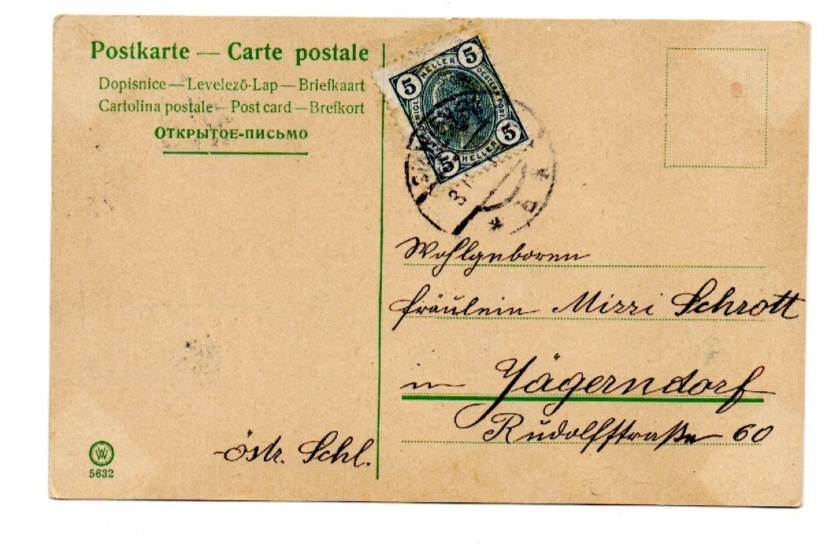 Postkarte — Carte postale
Dopisnice — Levelező-Lap — Briefkaart
Cartolina postale — Post card — Brefkort
ОТКРЫТОЕ-ПИСЬМО
5 HELLER 5
5 HELLER 5
3
Wohlgeboren
Fräulein Mizzi Schrott
in Jägerndorf
Rudolfstraße 60
östr. Schl.
W
5632